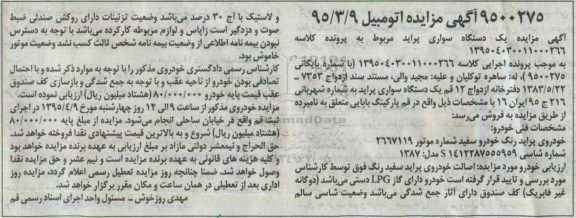 ۹۵۰۰۲۷۵ آگهی مزایده اتومبیل ۹۵/۳/۹
آگهی مزایده یک دستگاه سواری پراید مربوط به پرونده کلاسه
۱۳۹۵۰۴۰۳۰۰۱۱۰۰۰۲۶۶
به موجب پرونده اجرایی کلاسه ۱۳۹۵۰۴۰۳۰۰۱۱۰۰۰۲۶۶ (با شماره بایگانی
۹۵۰۰۲۷۵)، له: ساهره توکلیان و علیه: مجید والی، مستند سند ازدواج ۷۳۵۳ -
۱۳۸۳/۵/۲۲ دفترخانه ازدواج ۱۲ قم یک دستگاه سواری پراید به شماره شهربانی
۲۱۶ ج ۹۵ ایران ۱۶ با مشخصات ذیل واقع در قم پارکینگ بابایی متعلق به نامبرده
از طریق مزایده به فروش می‌رسد:
مشخصات فنی خودرو:
خودروی پراید رنگ خودرو سفید شماره موتور ۲۶۶۷۱۱۹
شماره شاسی S۱۴۱۲۲۸۷۵۵۵۹۵۹ مدل: ۱۳۸۷
ارزیابی خودرو مورد مزایده: اصالت خودروی پراید سفید رنگ فوق توسط کارشناس
مورد بررسی و تایید قرار گرفته است خودرو دارای گاز LPG دستی می‌باشد (دوگانه
غیر فابریک) کف صندوق دارای آثار جمع شدگی می‌باشد وضعیت شاسی سالم
و لاستیک با آج ۳۰ درصد می‌باشد وضعیت تزئینات دارای روکش صندلی ضبط
صوت و دزدگیر است زاپاس و لوازم مربوطه کارکرده می‌باشد با توجه به دسترس
نبودن بیمه نامه اطلاعی از وضعیت بیمه نامه شخص ثالث کسب نشد وضعیت موتور
خاموش بود.
کارشناس رسمی دادگستری خودروی مذکور را با توجه به موارد ذکر شده و با احتمال
تصادفی بودن خودرو از ناحیه عقب و با توجه به جمع شدگی و بازسازی کف صندوق
عقب قیمت پایه خودرو ۸۰/۰۰۰/۰۰۰ (هشتاد میلیون ریال) ارزیابی نموده است.
مزایده خودروی مذکور از ساعت ۹ الی ۱۲ روز چهارشنبه مورخ ۱۳۹۵/۴/۹ در اجرای
ثبت قم واقع در خیابان ساحلی انجام می‌شود. مزایده از مبلغ پایه ۸۰/۰۰۰/۰۰۰
(هشتاد میلیون ریال) شروع و به بالاترین قیمت پیشنهادی نقدا فروخته خواهد شد.
حق الحراج و نیمعشر دولتی مازاد بر مبلغ ارزیابی به عهده برنده مزایده خواهد بود
و کلیه هزینه های قانونی به عهده برنده مزایده است و نیم عشر و حق مزایده نقدا
وصول خواهد شد. ضمنا چنانچه روز مزایده تعطیل رسمی اعلام گردد، مزایده روز
اداری بعد از تعطیلی در همان ساعت و مکان مقرر برگزار خواهد شد.
مهدی روزخوش - مسئول واحد اجرای اسناد رسمی قم